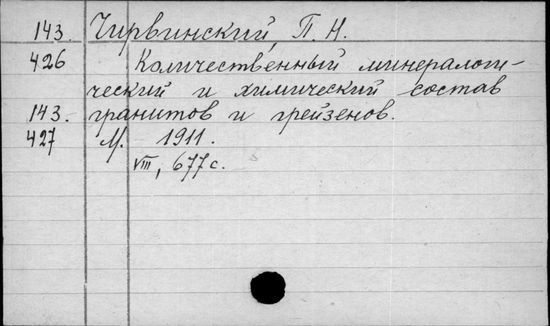 143. Чирвинский, П. Н.
426 Количественный минералоги-
ческий и химический состав
143. гранитов и грейзенов.
427 М. 1911.
VIII, 677 с.